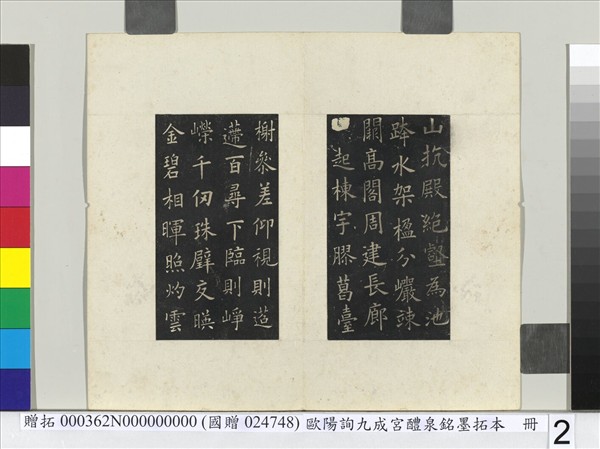 山抗殿絕壑為池
跨水架楹分巖竦
闕高閣周建長廊
起棟宇膠葛臺
榭參差仰視則迢
遰百尋下臨則崢
嶸千仞珠璧交暎
金碧相暉照灼雲
贈拓 000362N000000000 (國贈 024748) 歐陽詢九成宮醴泉銘墨拓本 冊
2